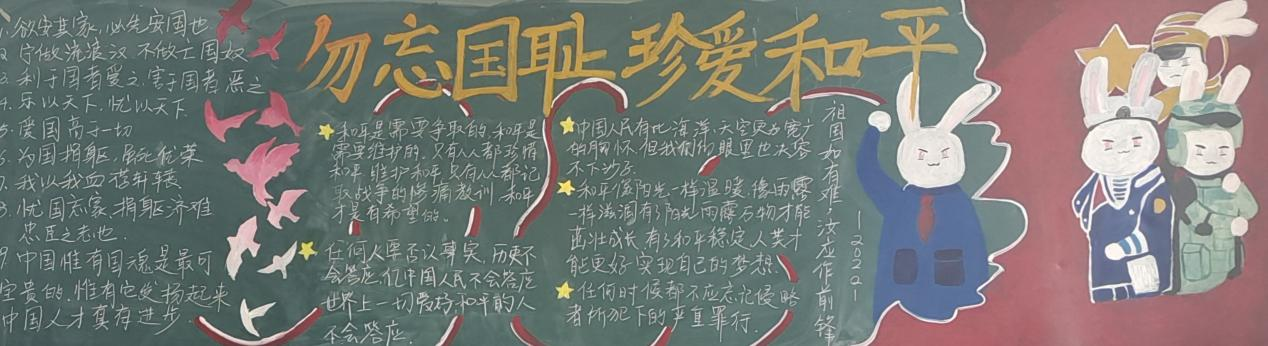 勿忘国耻 珍爱和平
1.欲安其家,必先安国也
2.宁做流浪汉,不做亡国奴
3.利于国者爱之,害于国者恶之
4.乐以天下,忧以天下
5.爱国高于一切
6.为国捐躯,虽死犹荣
7.我以我血荐轩辕
8.忧国忘家,捐躯济难
忠臣之志也.
9.中国惟有国魂是最可
宝贵的,惟有它发扬起来
中国人才真有进步.
和平是需要争取的,和平是
需要维护的.只有人人都珍惜
和平维护和平,只有人人都记
取战争的惨痛教训,和平
才是有希望的.
任何人要否认事实,历史不
会答应,亿中国人民不会答应
世界上一切爱好和平的人
不会答应.
中国人民有比海洋,天空更为宽广
的胸怀,但我们的眼里也决容
不下沙子.
和平像阳光一样温暖,像雨露
一样滋润有了阳光雨露万物才能
茁壮成长,有了和平稳定,人类才
能更好实现自己的梦想.
任何时候都不应忘记侵略
者所犯下的严重罪行.
祖国如有难,汝应作前锋
—2021—